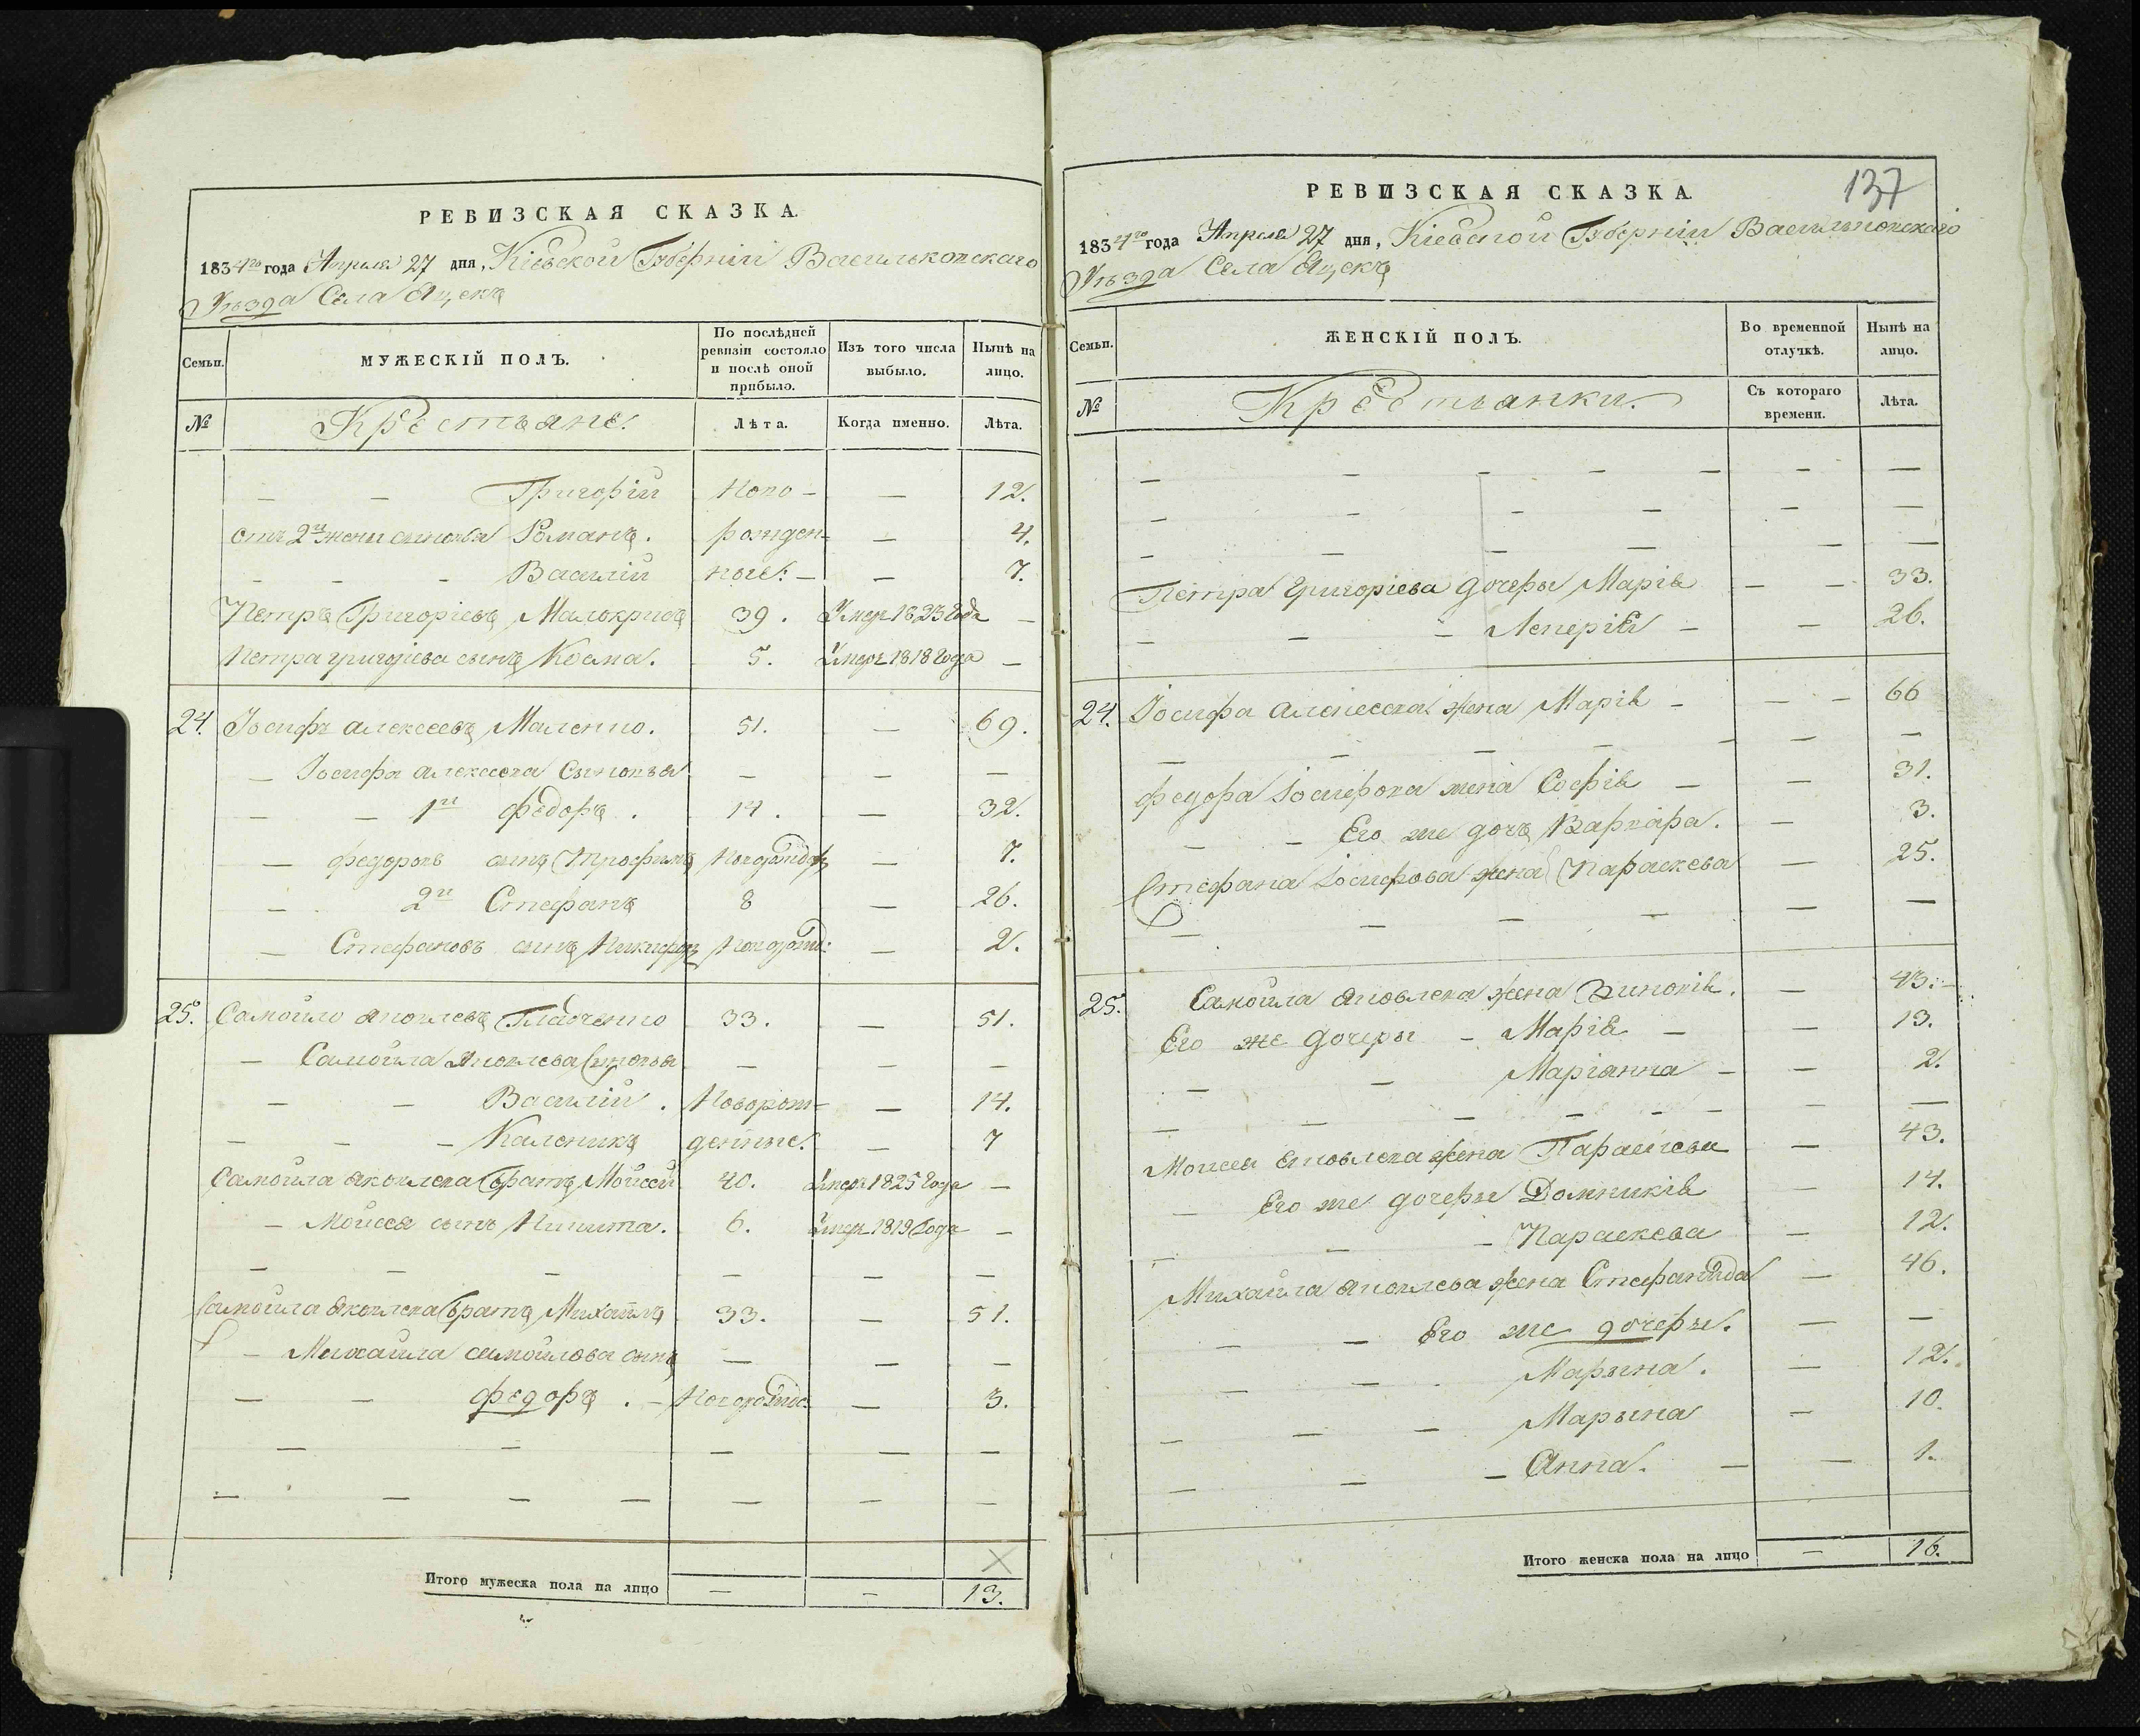 РЕВИЗСКАЯ СКАЗКА.
1834го года Апреля 27 дня, Кіевской Губерніи Васильковскаго
Уѣзда Села Яцекъ
Семьи. МУЖЕСКІЙ ПОЛЪ. По послѣдней ревизіи состояло и послѣ оной прибыло. Изъ того числа выбыло. Нынѣ на лицо.
№ Крестьяне. Лѣта. Когда именно. Лѣта.
— — Григорій Ново- — 12.
отъ 2й жены сыновья Романъ. рожден- — 4.
— — — Василій ные: — — 7.
Петръ Григоріевъ 39. Умеръ 1823 года —
Петра григоріева сынъ Козма. 5. Умеръ 1818 года —
24. Іосифъ алексеевъ Маленко. 51. — 69.
— Іосифа алексеева Сыновья — — —
— — 1й федоръ. 14. — 32.
— федоровъ сынъ Трофимъ — 7.
— 2й Стефанъ 8 — 26.
— Стефановъ сынъ Никифоръ — 2.
25. Самойло яковлевъ 33. — 51.
— Самойла яковлева Сыновья — — —
— — Василій. Новорож- — 14.
— — — Каленикъ денные. — 7
Самойла яковлева братъ Мойсей 40. Умеръ 1825 года —
— Мойсея сынъ Никита. 6. Умеръ 1819 года —
— — — — — —
Самойла яковлева братъ Михайло 33. — 51.
— Михайла самойлова сынъ — — —
— — федоръ. — — 3.
— — — — —
— — — — — — —
Итого мужеска пола на лицо — — 13.
137
РЕВИЗСКАЯ СКАЗКА.
1834го года Апреля 27 дня, Кіевской Губерніи Васильковскаго
Уѣзда Села Яцекъ
Семьи. ЖЕНСКІЙ ПОЛЪ. Во временной отлучкѣ. Нынѣ на лицо.
№ Крестьянки. Съ котораго времени. Лѣта.
— — — — — —
— — — — — —
— — — — — —
Петра григоріева дочеры Марія — — 33.
— — — — — 26.
24. Іосифа алексеева жена Марія — — — 66
— — — — — — —
федора іосифова жена Софія — — 31.
— — Его же дочь Варвара. — 3.
Стефана іосифова жена Параскева — 25.
— — — — — —
25. Самойла яковлева жена Зиновія. — 43.
Его же дочеры — Марія — — 13.
— — Маріанна — — 2.
— — — — — — —
Моисея яковлева жена Параскева — 43.
— Его же дочеры Домникія — 14.
— — — Параскева — 12.
Михайла яковлева жена Стефанида — 46.
— — Его же дочеры. — —
— — — Марына. — 12.
— — — Марына — 10.
— — — Анна. — — 1.
Итого женска пола на лицо — 16.